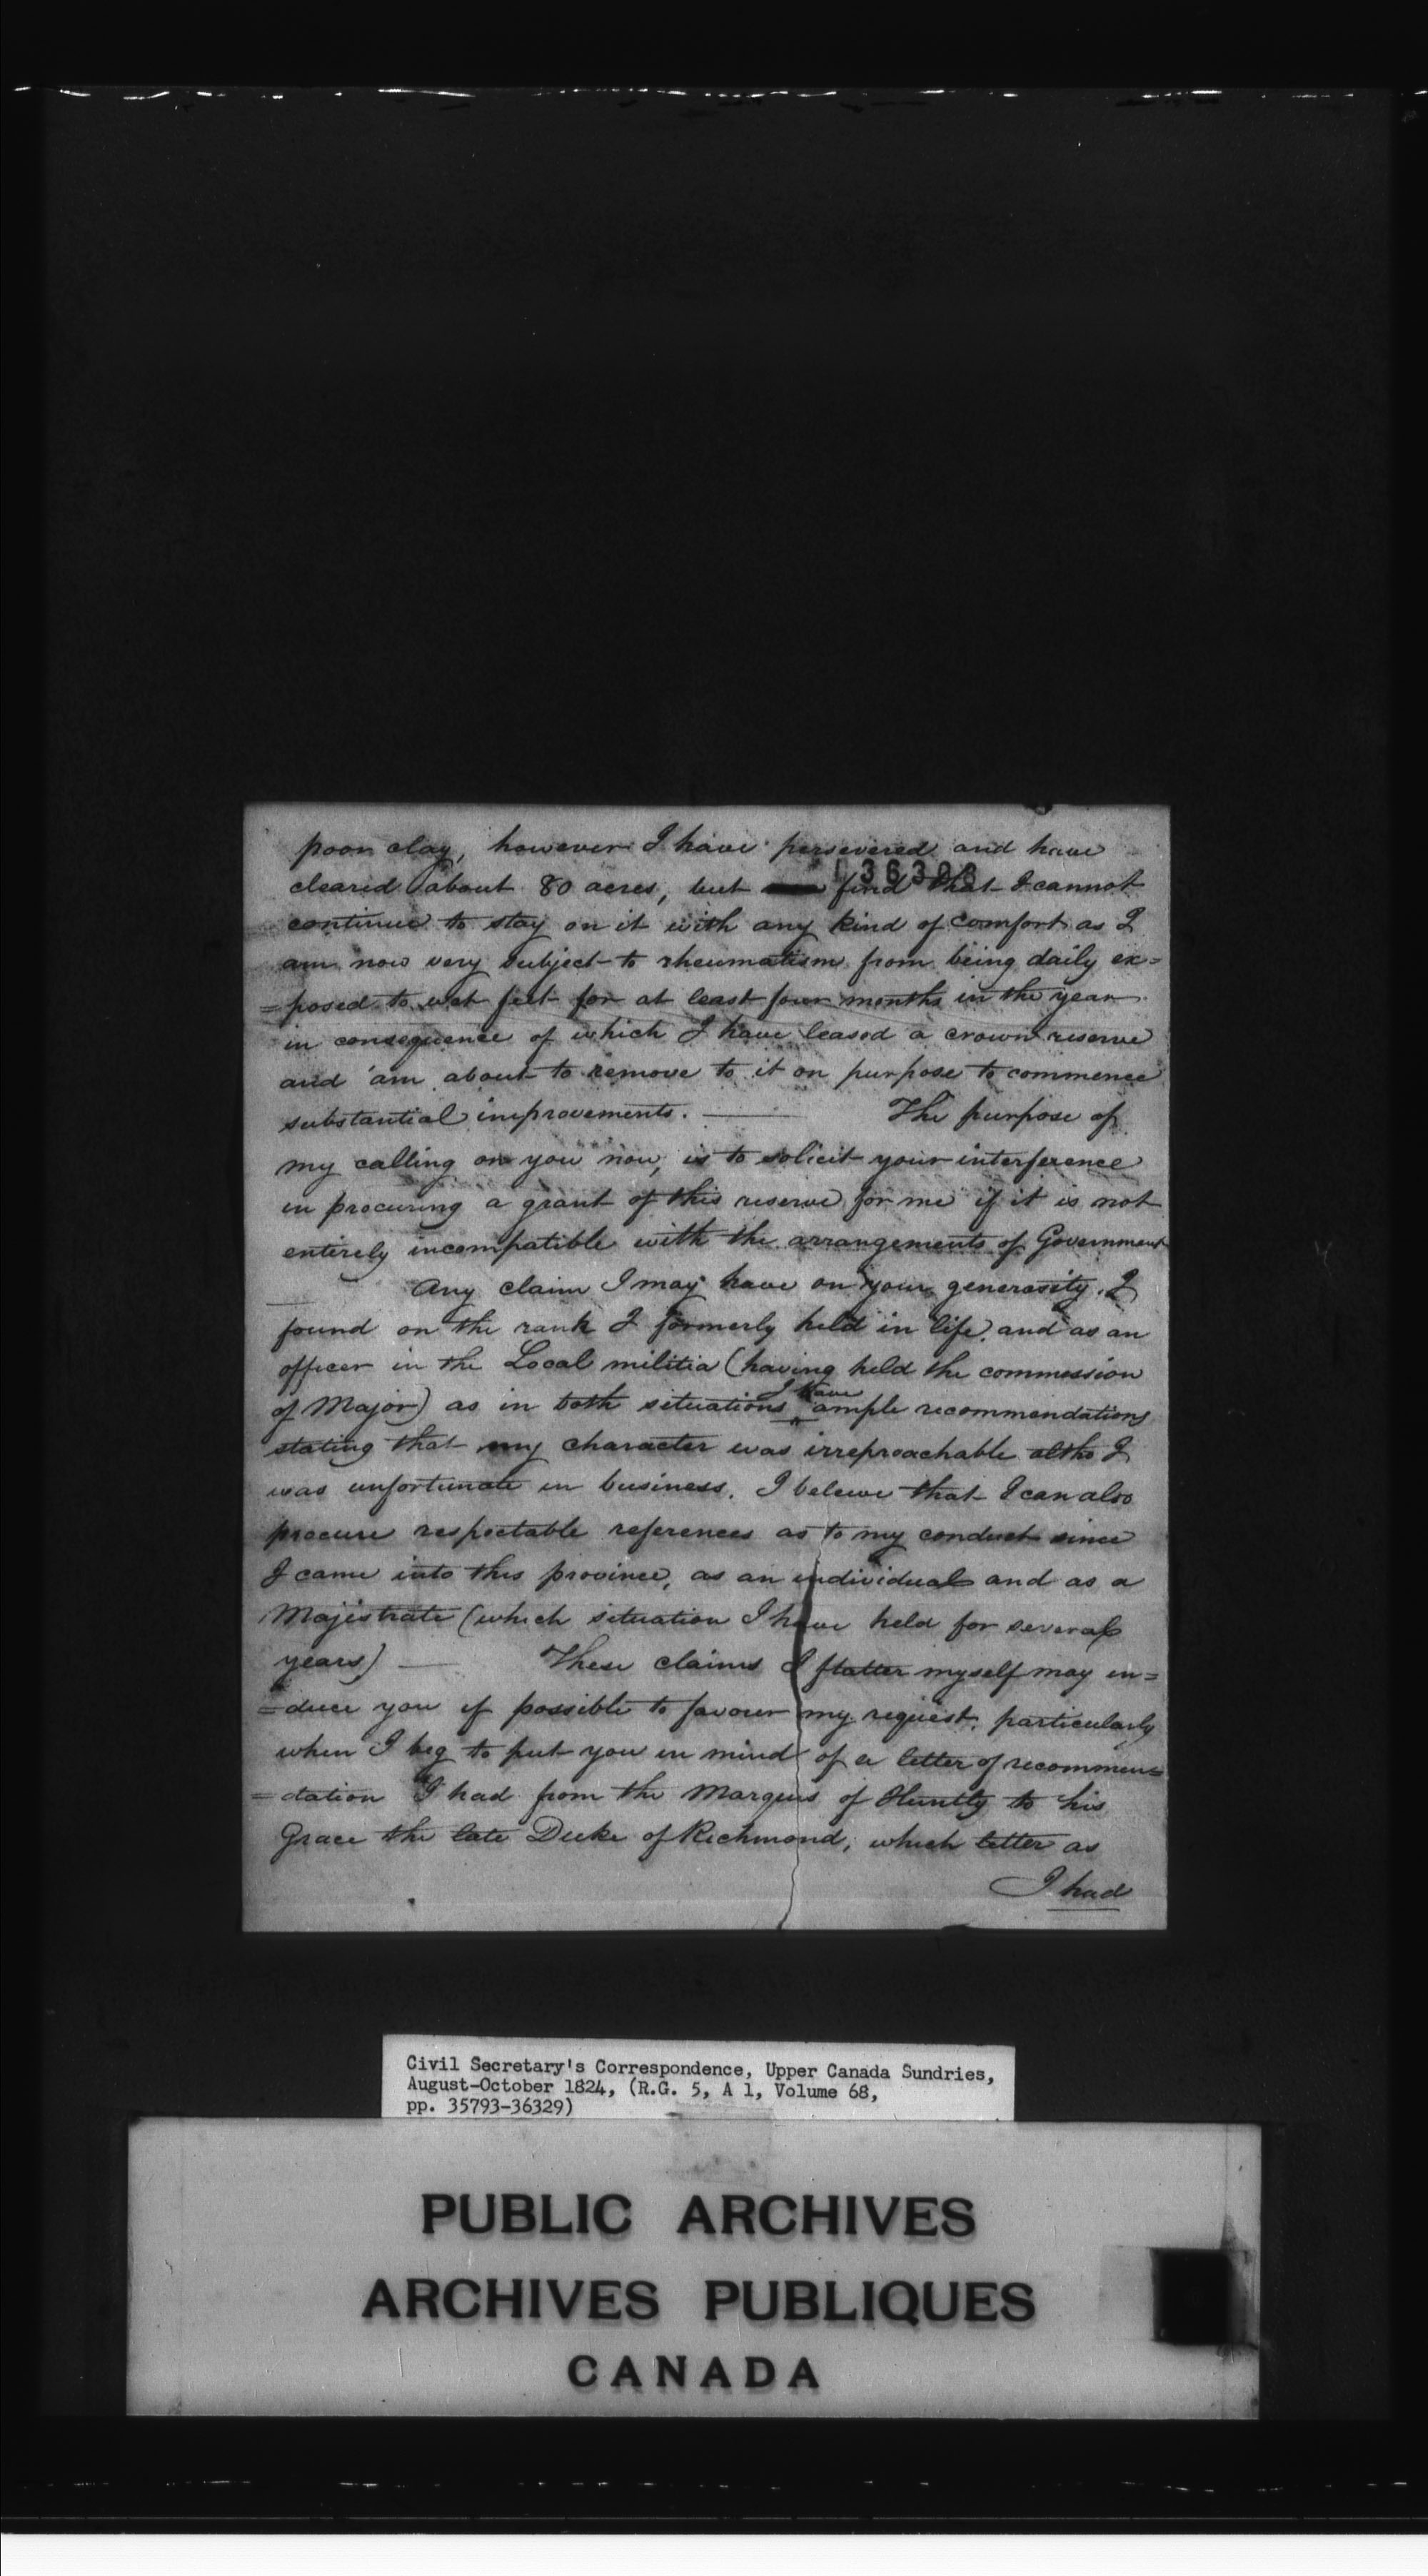 poor clay, however I have persevered and have
cleared about 80 acres, but find that I cannot
continue to stay on it with any kind of comfort as I
am now very subject to rheumatism from being daily ex=
=posed to wet feet for at least four months in the year
in consequence of which I have leased a crown reserve
and am about to remove to it on purpose to commence
substantial improvements. — The purpose of
my calling on you now, is to solicit your interference
in procuring a grant of this reserve for me if it is not
entirely incompatible with the arrangements of Government
— Any claim I may have on your generosity, I
found on the rank I formerly held in life, and as an
officer in the Local militia (having held the commession
of Major) as in both situations I have ample recommendations
stating that my character was irreproachable altho I
was unfortunate in business. I beleive that I can also
procure respectable references as to my conduct since
I came into this province, as an individual and as a
Majestrate (which situation I have held for several
years) — These claims I flatter myself may in=
=duce you if possible to favour my request, particularly
when I beg to put you in mind of a letter of recommen=
=dation I had from the Marquis of Huntly to his
Grace the late Duke of Richmond, which letter as
I had
Civil Secretary's Correspondence, Upper Canada Sundries,
August-October 1824, (R.G. 5, A 1, Volume 68,
pp. 35793-36329)
PUBLIC ARCHIVES
ARCHIVES PUBLIQUES
CANADA